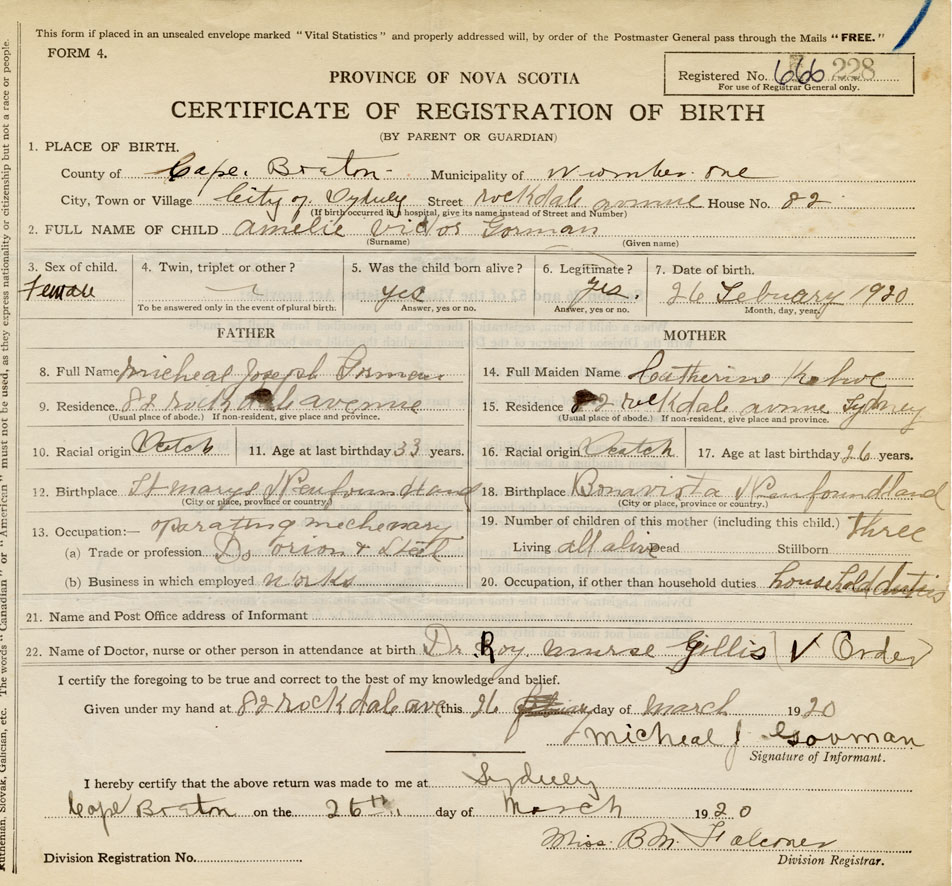 This form if placed in an unsealed envelope marked "Vital Statistics" and properly addressed will, by order of the Postmaster General pass through the Mails "FREE."
FORM 4.
Registered No. 666 228
For use of Registrar General only.
PROVINCE OF NOVA SCOTIA
CERTIFICATE OF REGISTRATION OF BIRTH
(BY PARENT OR GUARDIAN)
1. PLACE OF BIRTH.
County of Cape Braton Municipality of Nwomber one
City, Town or Village City of Sydney Street rockdale avenue House No. 82
(If birth occurred in a hospital, give its name instead of Street and Number)
2. FULL NAME OF CHILD amelie Victor Gorman
(Surname) (Given name)
3. Sex of child. 4. Twin, triplet or other? 5. Was the child born alive? 6. Legitimate? 7. Date of birth.
Female yes yes. 26 Febuary 1920
To be answered only in the event of plural birth. Answer, yes or no. Answer, yes or no. Month, day, year.
FATHER MOTHER
8. Full Name Micheal Joseph Gorman 14. Full Maiden Name Catherine
9. Residence. 82 rockdale avenue 15. Residence 82 rockdale avnue Sydney
(Usual place of abode.) If non-resident, give place and province. (Usual place of abode.) If non-resident, give place and province.
10. Racial origin 11. Age at last birthday 33 years. 16. Racial origin 17. Age at last birthday 26 years.
12. Birthplace St marys Newfoundland 18. Birthplace Bonavista Newfoundland
(City or place, province or country.) (City or place, province or country.)
13. Occupation:— oparating mechenary 19. Number of children of this mother (including this child.) three
(a) Trade or profession D. orion & Steel Living all alive Dead Stillborn
(b) Business in which employed works 20. Occupation, if other than household duties household duties
21. Name and Post Office address of Informant
22. Name of Doctor, nurse or other person in attendance at birth Dr Roy nurse Gillis V Order
I certify the foregoing to be true and correct to the best of my knowledge and belief.
Given under my hand at 82 rockdale ave this 26 day of March 1920
Micheal J Gorman
Signature of Informant.
I hereby certify that the above return was made to me at Sydney
Cape Braton on the 26th day of March 1920
Miss. B.M. Falconer
Division Registrar.
Division Registration No.
Ruthenian, Slovak, Galician, etc. The words "Canadian" or "American" must not be used, as they express nationality or citizenship but not a race or people.